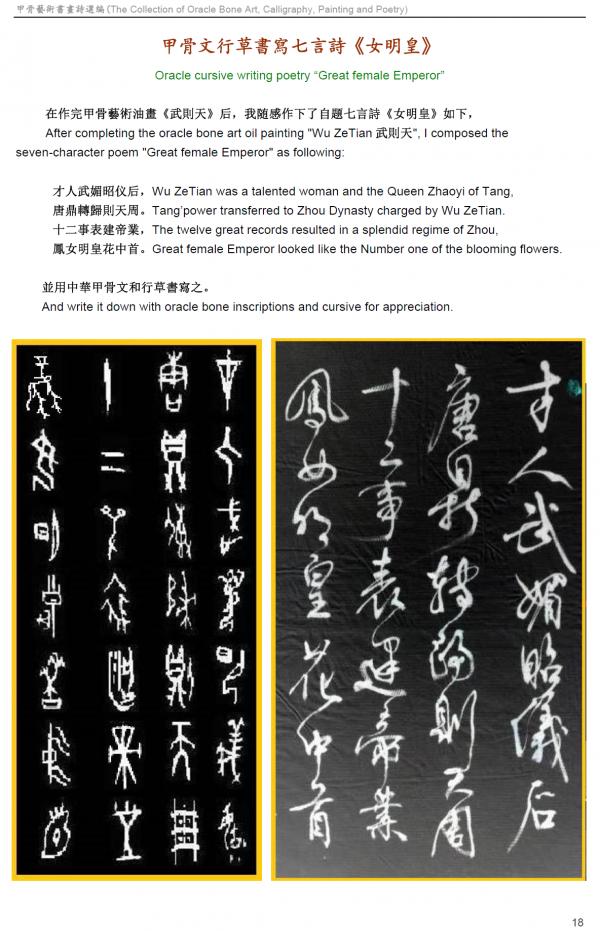 甲骨藝術書畫詩選編(The Collection of Oracle Bone Art, Calligraphy, Painting and Poetry)
甲骨文行草書寫七言詩《女明皇》
Oracle cursive writing poetry “Great female Emperor”
在作完甲骨藝術油畫《武則天》后，我随感作下了自題七言詩《女明皇》如下，
After completing the oracle bone art oil painting "Wu ZeTian 武則天", I composed the
seven-character poem "Great female Emperor" as following:
才人武媚昭仪后，Wu ZeTian was a talented woman and the Queen Zhaoyi of Tang,
唐鼎轉歸則天周。Tang’power transferred to Zhou Dynasty charged by Wu ZeTian.
十二事表建帝業，The twelve great records resulted in a splendid regime of Zhou,
鳳女明皇花中首。Great female Emperor looked like the Number one of the blooming flowers.
並用中華甲骨文和行草書寫之。
And write it down with oracle bone inscriptions and cursive for appreciation.
才人武媚昭儀后
唐鼎轉歸則天周
十二事表建帝業
鳳女明皇花中首
18